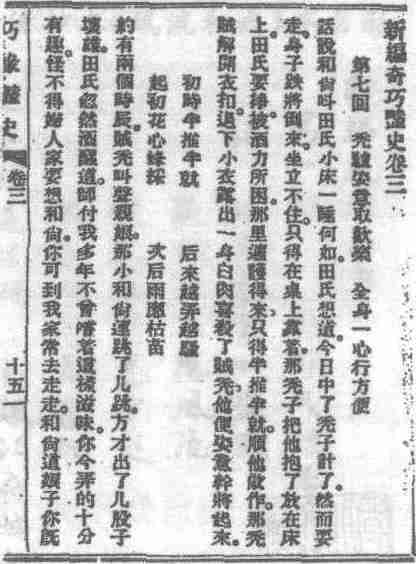 新編奇巧豔史卷三
第七回　禿驢姿意取歡樂　全身一心行方便
話說和尙叫田氏小床一睡何如。田氏想道。今日中了禿子計了。然而要
走。身子跌將倒來。坐立不住。只得在桌上靠着。那禿子把他抱了放在床
上。田氏要掙被酒力所困。那里遮護得來。只得半推半就。順他做作。那禿
賊解開衣扣。退下小衣露出一身白肉喜殺了賊禿。他便姿意幹將起來。
初時半推半就　后來越弄越騷
起初花心採　次后雨應枯苗
約有兩個時辰。賊禿叫聲親娘。那小和尙連跳了几跳。方才出了几股子
田氏忽然酒醒道。師付我多年不曾嚐着這樣滋味。你今弄的十分
有趣。怪不得婦人家要想和尙。你可到我家常去走走。和尙道。娘子你旣
巧豔史　卷三　十五